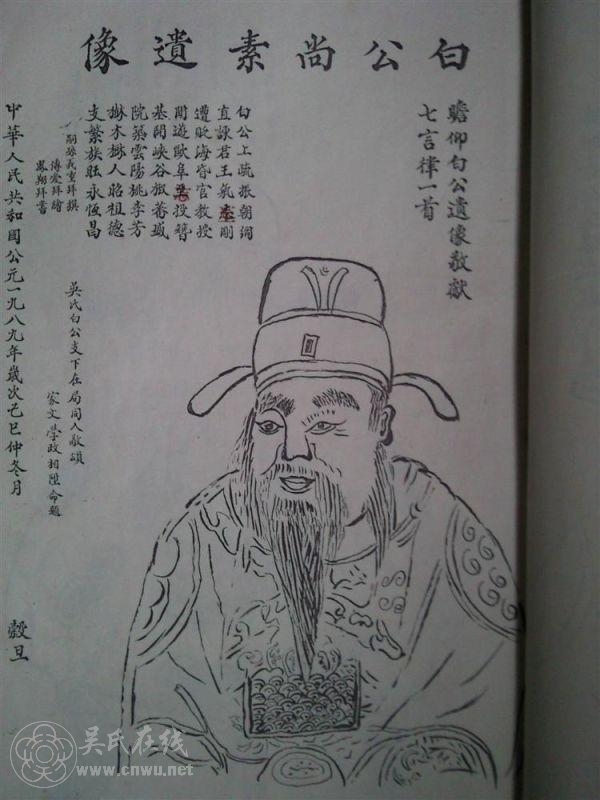 白公尚素遺像
瞻仰白公遺像敬獻
七言律一首
白公上疏振朝綱
直諫君王氣剛
遭貶海昏官教授
閒遊歐阜投簪
基開峽谷徵蕃盛
院築雲陽桃李芳
樹木樹人昭祖德
支繁族旺永恆昌
嗣孫義重拜撰
傳愛拜繪
鳳翔拜書
吳氏白公支下在局同人敬頌
家文學政相陞命題
中華人民共和國公元一九八九年歲次己巳仲冬月 穀旦
吴氏在线
www.cnwu.net